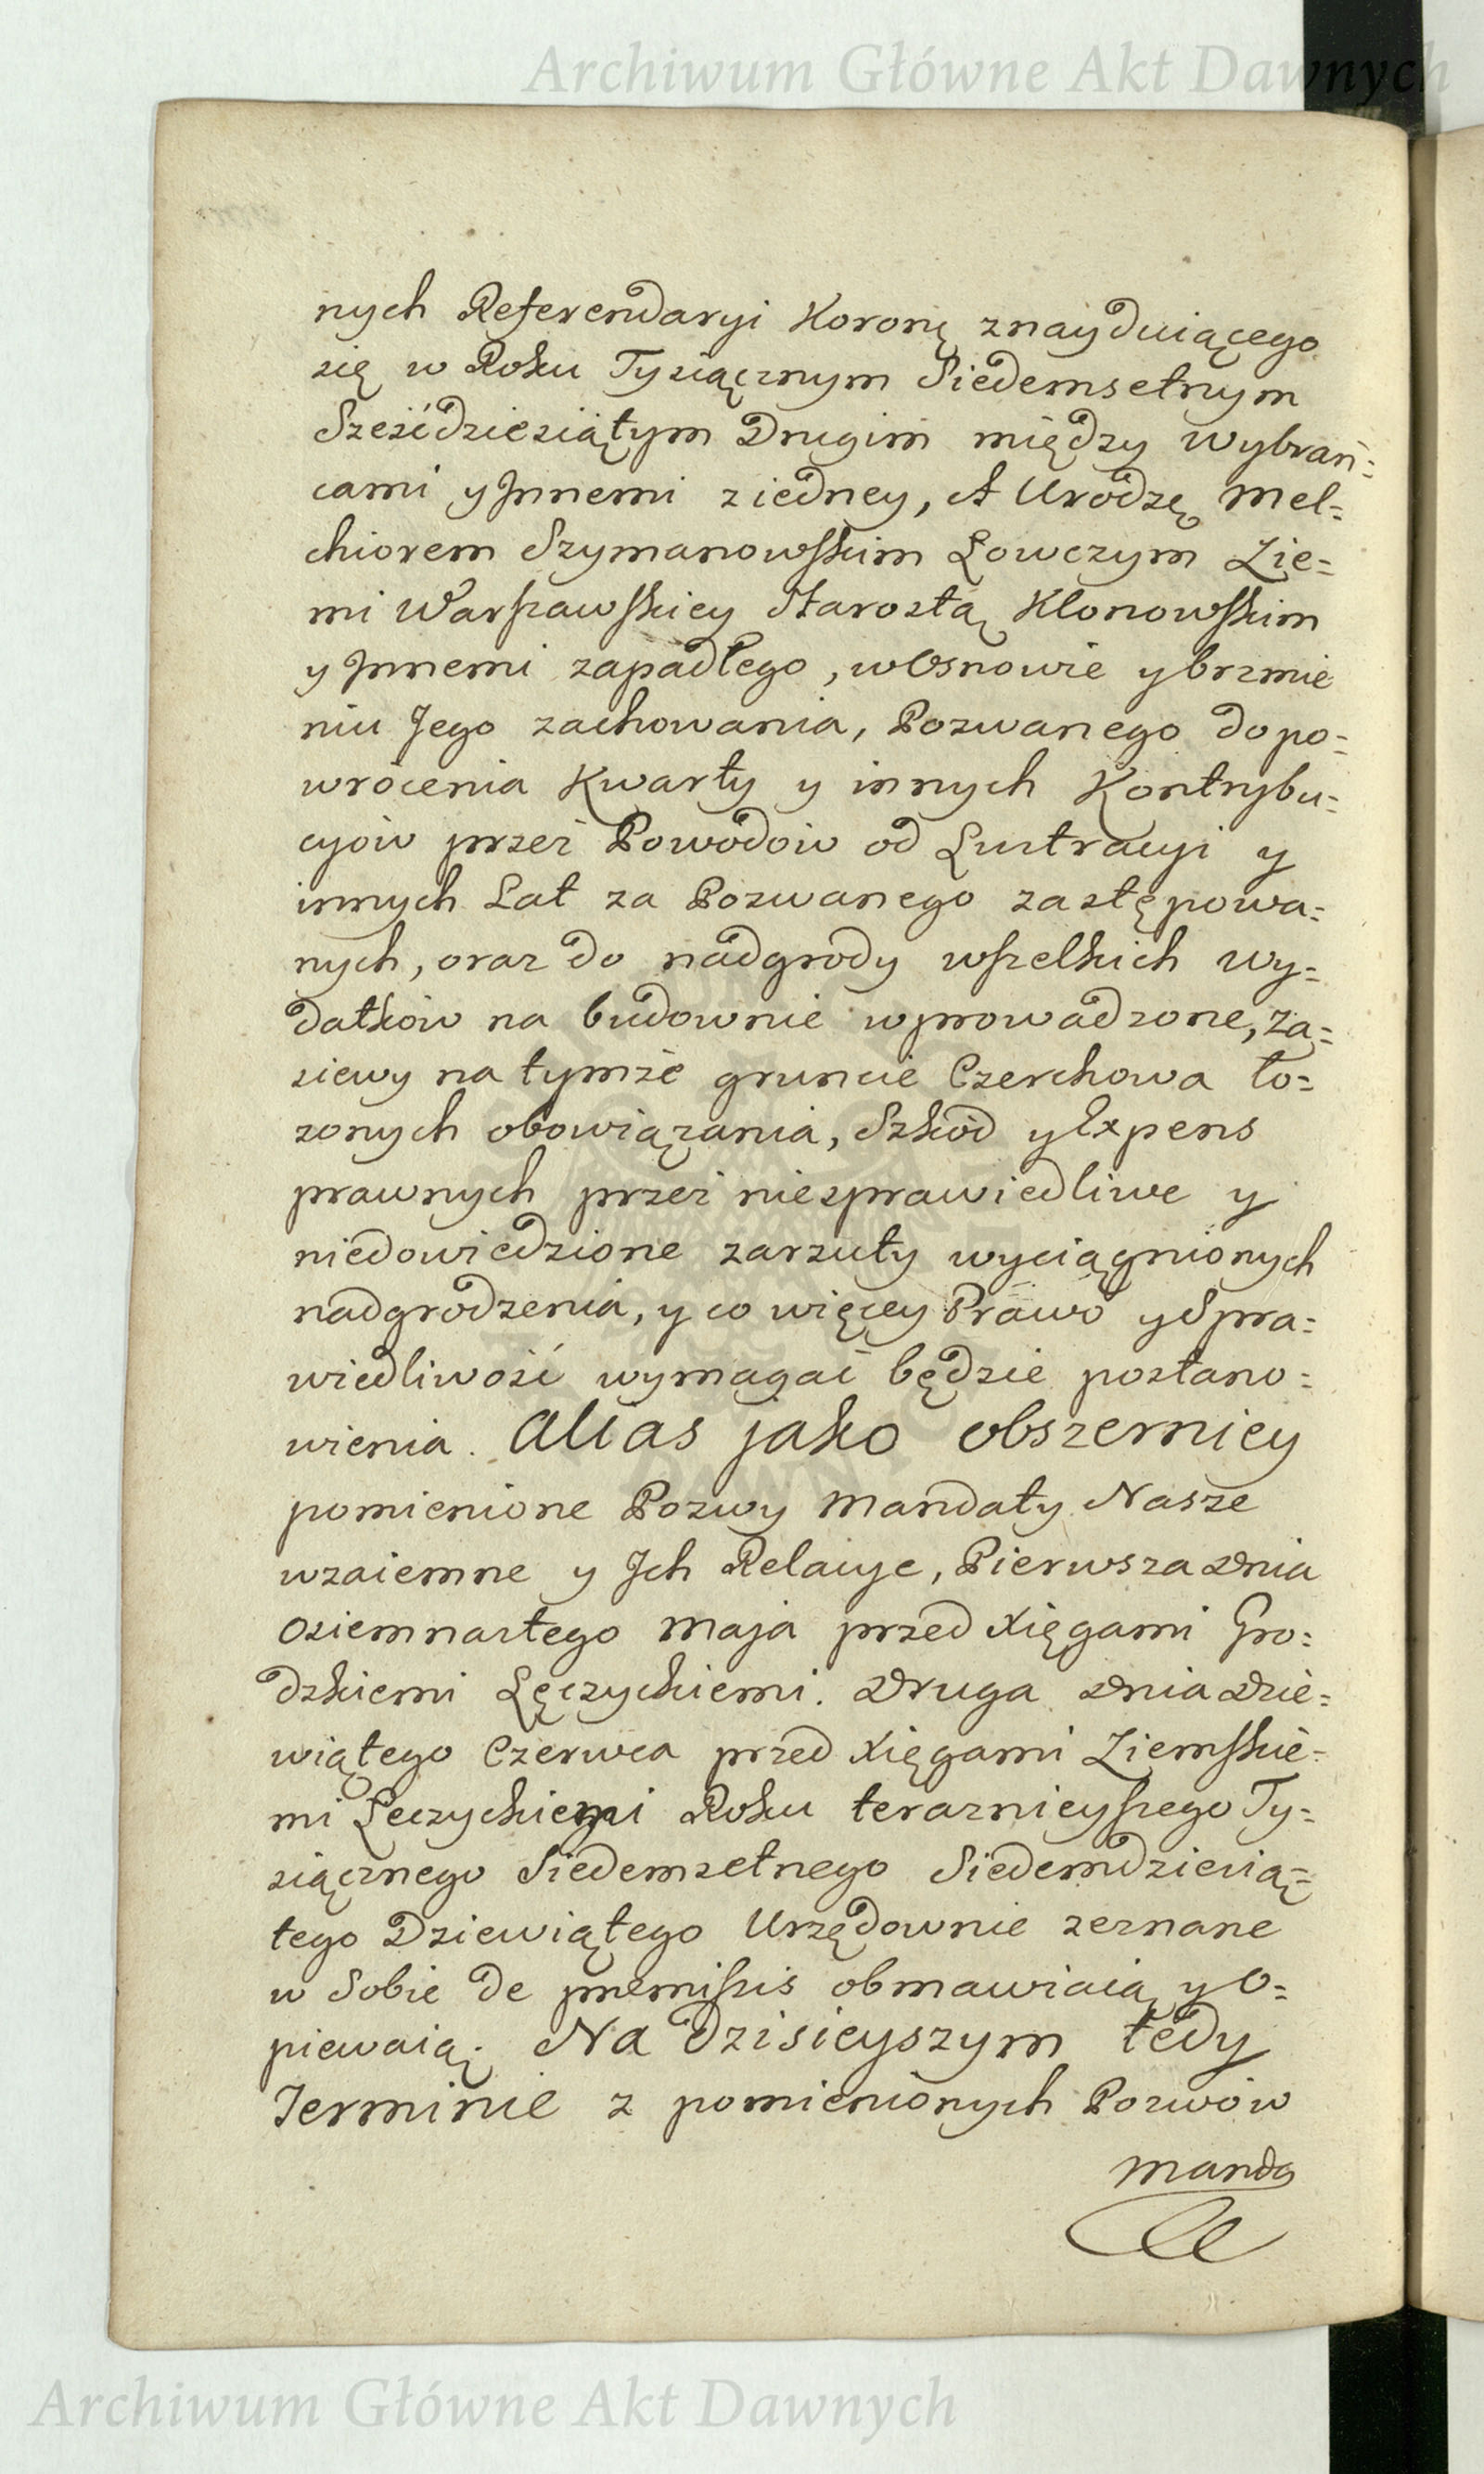 Archiwum Główne Akt Dawnych
nych Referendaryi Koronę znayduiącego
się w Roku Tysiącznym Siedemsetnym
Sześćdziesiątym Drugim między Wybrań=
cami y Innemi z iedney, A Urodzę Mel=
chiorem Szymanowskim Łowczym Zie=
mi Warszawskiey Starostą Klonowskim
y Innemi zapadłego, w Osnowie y brzmie
niu Jego zachowania, Pozwanego do po=
wrócenia Kwarty y innych Kontrybu=
cyów przez Powodów od Lustracyi y
innych Lat za Pozwanego zastępowa=
nych, oraz do nadgrody wszelkich wy=
datków na budownie wprowadzone, Za=
siewy na tymże gruncie Czerchowa ło=
zonych obowiązania, Szkód y Expens
prawnych przez niesprawiedliwe y
niedowiedzione zarzuty wyciągnionych
nadgrodzenia, y co więcey Prawo y Spra=
wiedliwość wymagać będzie postano=
wienia. Alias jako obszerniey
pomienione Pozwy Mandaty Nasze
wzaiemne y Ich Relacye, Pierwsza Dnia
Osiemnastego Maja przed Xięgami Gro=
dzkiemi Łęczyckiemi. Druga Dnia Dzie=
wiątego Czerwca przed Xięgami Ziemskie=
mi Łeczyckiemi Roku teraznieyszego Ty=
siącznego Siedemsetnego Siedemdziesią=
tego Dziewiątego Urzędownie zeznane
w Sobie de premissis obmawiaią y O=
piewaią. Na Dzisieyszym tedy
Terminie z pomienionych Pozwów
Manda
Archiwum Główne Akt Dawnych